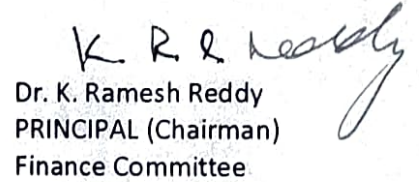 K. R. R. Reddy
Dr. K. Ramesh Reddy
PRINCIPAL (Chairman)
Finance Committee